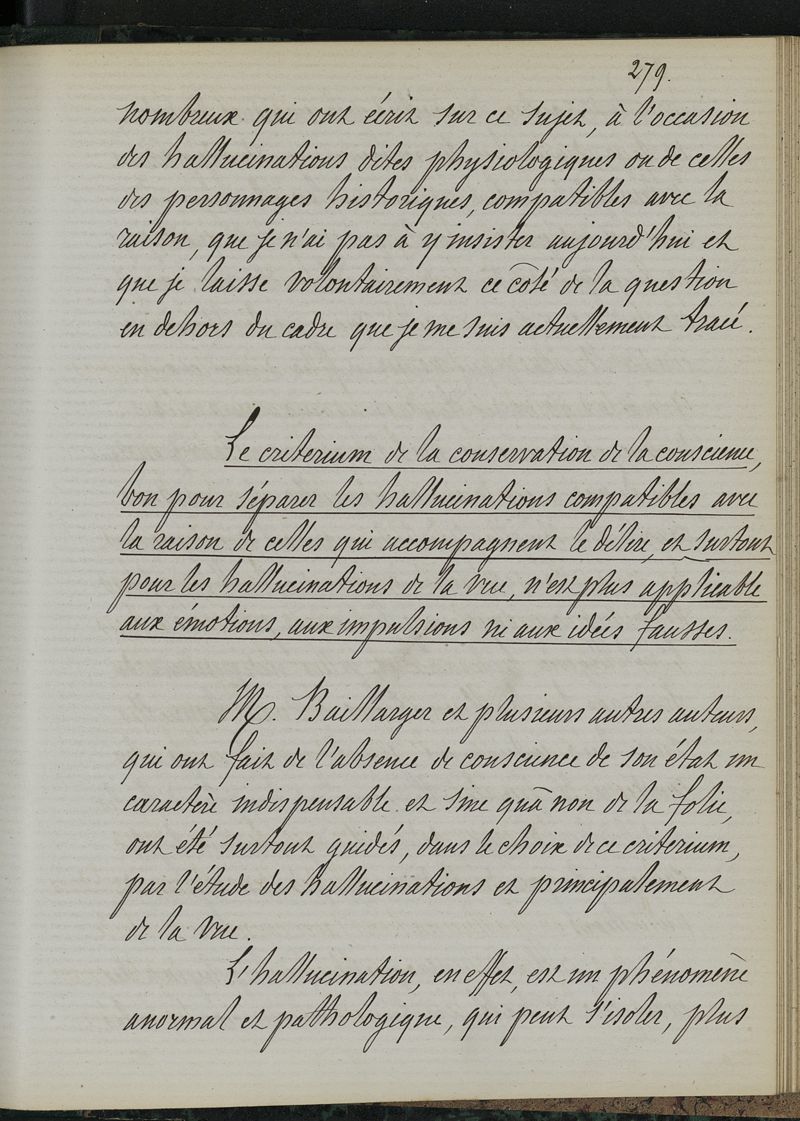 279.
nombreux qui ont écrit sur ce sujet, à l'occasion
des hallucinations dites physiologiques ou de celles
des personnages historiques, compatibles avec la
raison, que je n'ai pas à y insister aujourd'hui et
que je laisse volontairement ce côté de la question
en dehors du cadre que je me suis actuellement tracé.
Le criterium de la conservation de la conscience,
bon pour séparer les hallucinations compatibles avec
la raison de celles qui accompagnent le délire, et surtout
pour les hallucinations de la vue, n'est plus applicable
aux émotions, aux impulsions ni aux idées fausses.
M. Baillarger et plusieurs autres auteurs,
qui ont fait de l'absence de conscience de son état un
caractère indispensable et sine quâ non de la folie,
ont été surtout guidés, dans le choix de ce criterium,
par l'étude des hallucinations et principalement
de la vue.
L'hallucination, en effet, est un phénomène
anormal et pathologique, qui peut s'isoler, plus